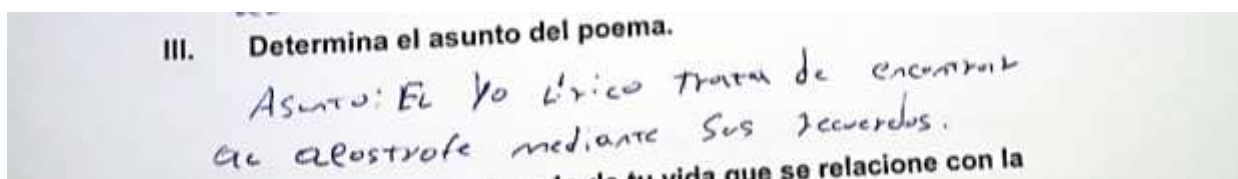 III. Determina el asunto del poema.
Asunto: El Yo Lírico trata de encontrar
al apostrofe mediante sus recuerdos.
de tu vida que se relacione con la